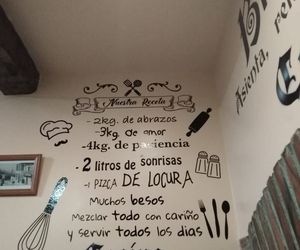 Nuestra Receta
- 2kg. de abrazos
- 3kg. de amor
- 4kg. de paciencia
- 2 litros de sonrisas
- 1 PIZCA DE LOCURA
Muchos besos
Mezclar todo con cariño
y servir todos los días